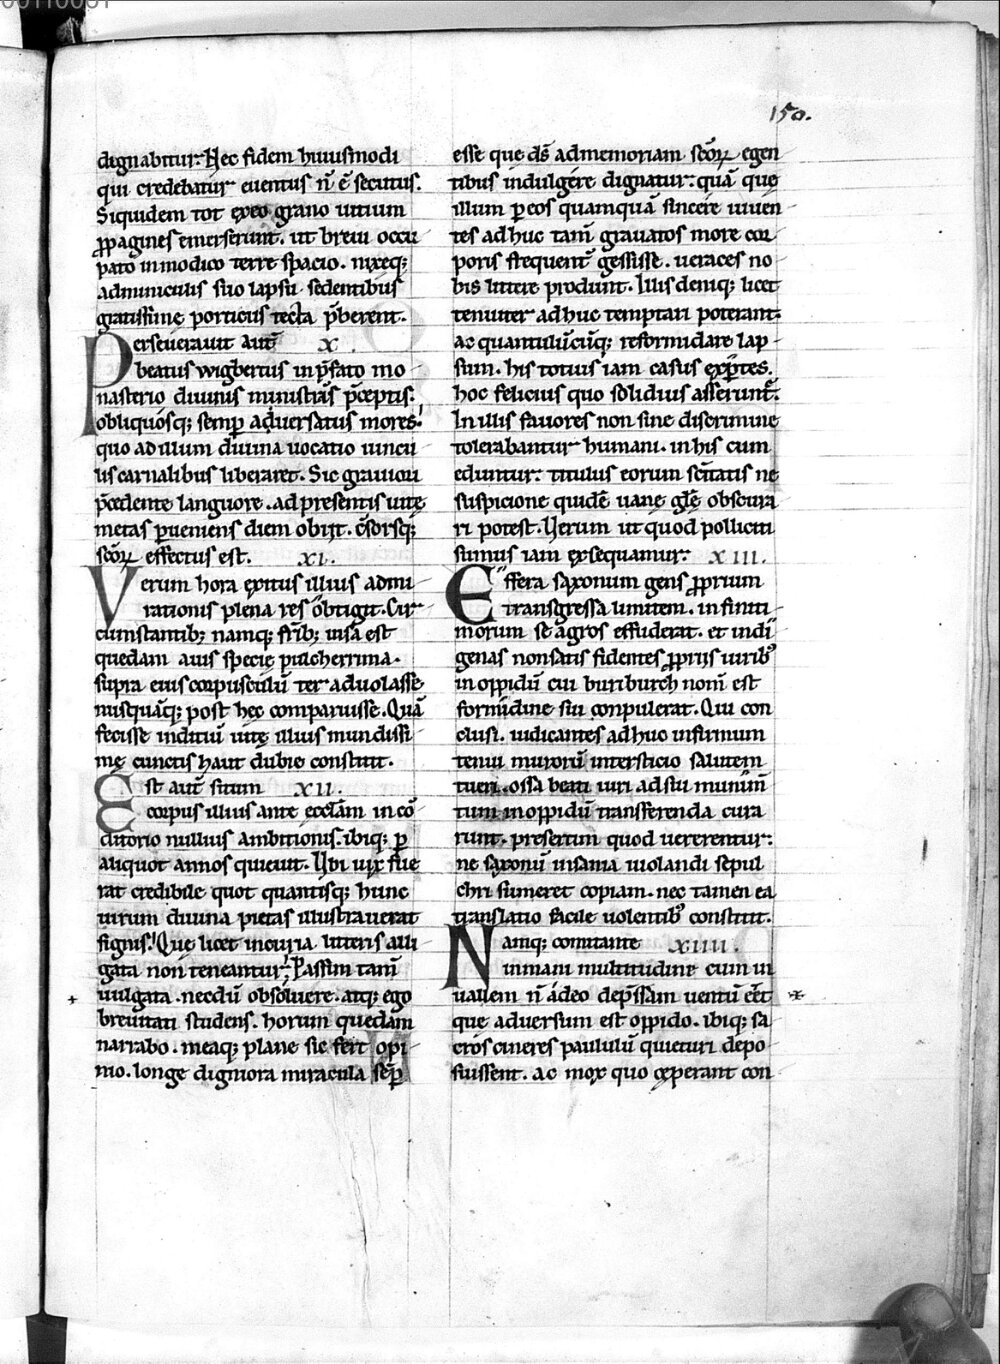 150.
dignabitur. Hec fidem huiusmodi
qui credebatur euentus n̄ ē secutus.
Siquidem tot exeo grano uitium
ꝓpagines emerserunt. ut breui occu
pato inmodico terre spacio. nixeq;
adminiculis suo lapsu sedentibus
gratissime porticus tecta p̄berent.
Perseuerauit aut̄ x.
beatus wigbertus in p̄fato mo
nasterio diuinis ministrās p̄ceptis.
obliquosq; semꝑ aduersatus mores.
quo ad illum diuina uocatio uincu
lis carnalibus liberaret. Sic grauiori
p̄cedente languore. ad presentis uitę
metas ꝑueniens diem obijt. c̄sorsq;
sc̄oꝝ effectus est. xi.
Verum hora exitus illius admi
rationis plena res obtigit. Cir
cumstantib; namq; fr̄ib; uisa est
quedam auis specie pulcherrima.
supra eius corpusculū ter aduolasse
nusquāq; post hec comparuisse. Quā
fecisse inditiū uitę illius mundissi
mę cunctis haut dubie constitit.
Est aut̄ situm xii.
corpus illius ante eccłam in cō
ditorio nullius ambitionis. ibiq; ꝑ
aliquot annos quieuit. Ubi uix fue
rat credibile quot quantisq; hunc
uirum diuina pietas illustrauerat
signis. Que licet incuria litteris alli
gata non teneantur. Passim tam̄
uulgata. necdū obsoluere. atq; ego
breuitati studens. horum quedam
narrabo. meaq; plane sic fert opi
nio. longe digniora miracula semꝑ
esse que ds̄ ad memoriam sc̄oꝝ egen
tibus indulgere dignatur. quā que
illum ꝑ eos quamquā sincere uiuen
tes adhuc tam̄ grauatos more cor
poris frequent̄ gessisse. ueraces no
bis littere produnt. Illis deniq; licet
tenuiter adhuc temptari poterant.
ac quantulūcūq; reformidare lap
sum. his totius iam casus exp̄tes.
hoc felicius quo solidius asserunt̄.
In illis fauores non sine discrimine
tolerabantur humani. in his cum
eduntur. titulus eorum sc̄itatis ne
suspicione quidē uanę glę̄ obscura
ri potest. Uerum ut quod polliciti
sumus iam exsequamur. xiii.
Effera saxonum gens ꝓprium
transgressa limitem. in finiti
morum se agros effuderat. et indi
genas non satis fidentes ꝓprijs uirib;
in oppidū cui buriburch nom̄ est
formidine sui conpulerat. Qui con
clusi. iudicantes adhuc infirmum
tenui murorū intersticio salutem
tueri. ossa beati uiri ad sui munim̄
tum in oppidū transferenda cura
runt. presertim quod uererentur.
ne saxonū insania uiolandi sepul
chri sumeret copiam. nec tamen ea
translatio facile uolentib; constitit.
Namq; comitante xiiii.
inmani multitudine cum in
uallem n̄ adeo dep̄ssam uentū eēt
que aduersum est oppido. ibiq; sa
cros cineres paululū quieturi depo
suissent. ac mox quo ceperant con